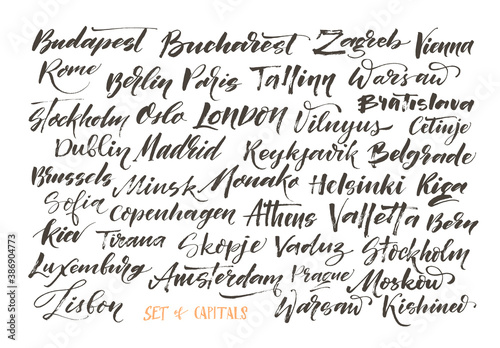 Budapest Bucharest Zagreb Vienna
Rome Berlin Paris Tallinn Warsaw
Bratislava
Stockholm Oslo LONDON Vilnyus Cetinje
Dublin Madrid Reykjavik Belgrade
Brussels Minsk Monako Helsinki Riga
Sofia Copenhagen Athens Valletta Bern
Kiev Tirana Skopje Vaduz Stockholm
Luxemburg Amsterdam Prague Moskow
Lisbon SET of CAPITALS Warsaw Kishinev
Adobe Stock | #386904773